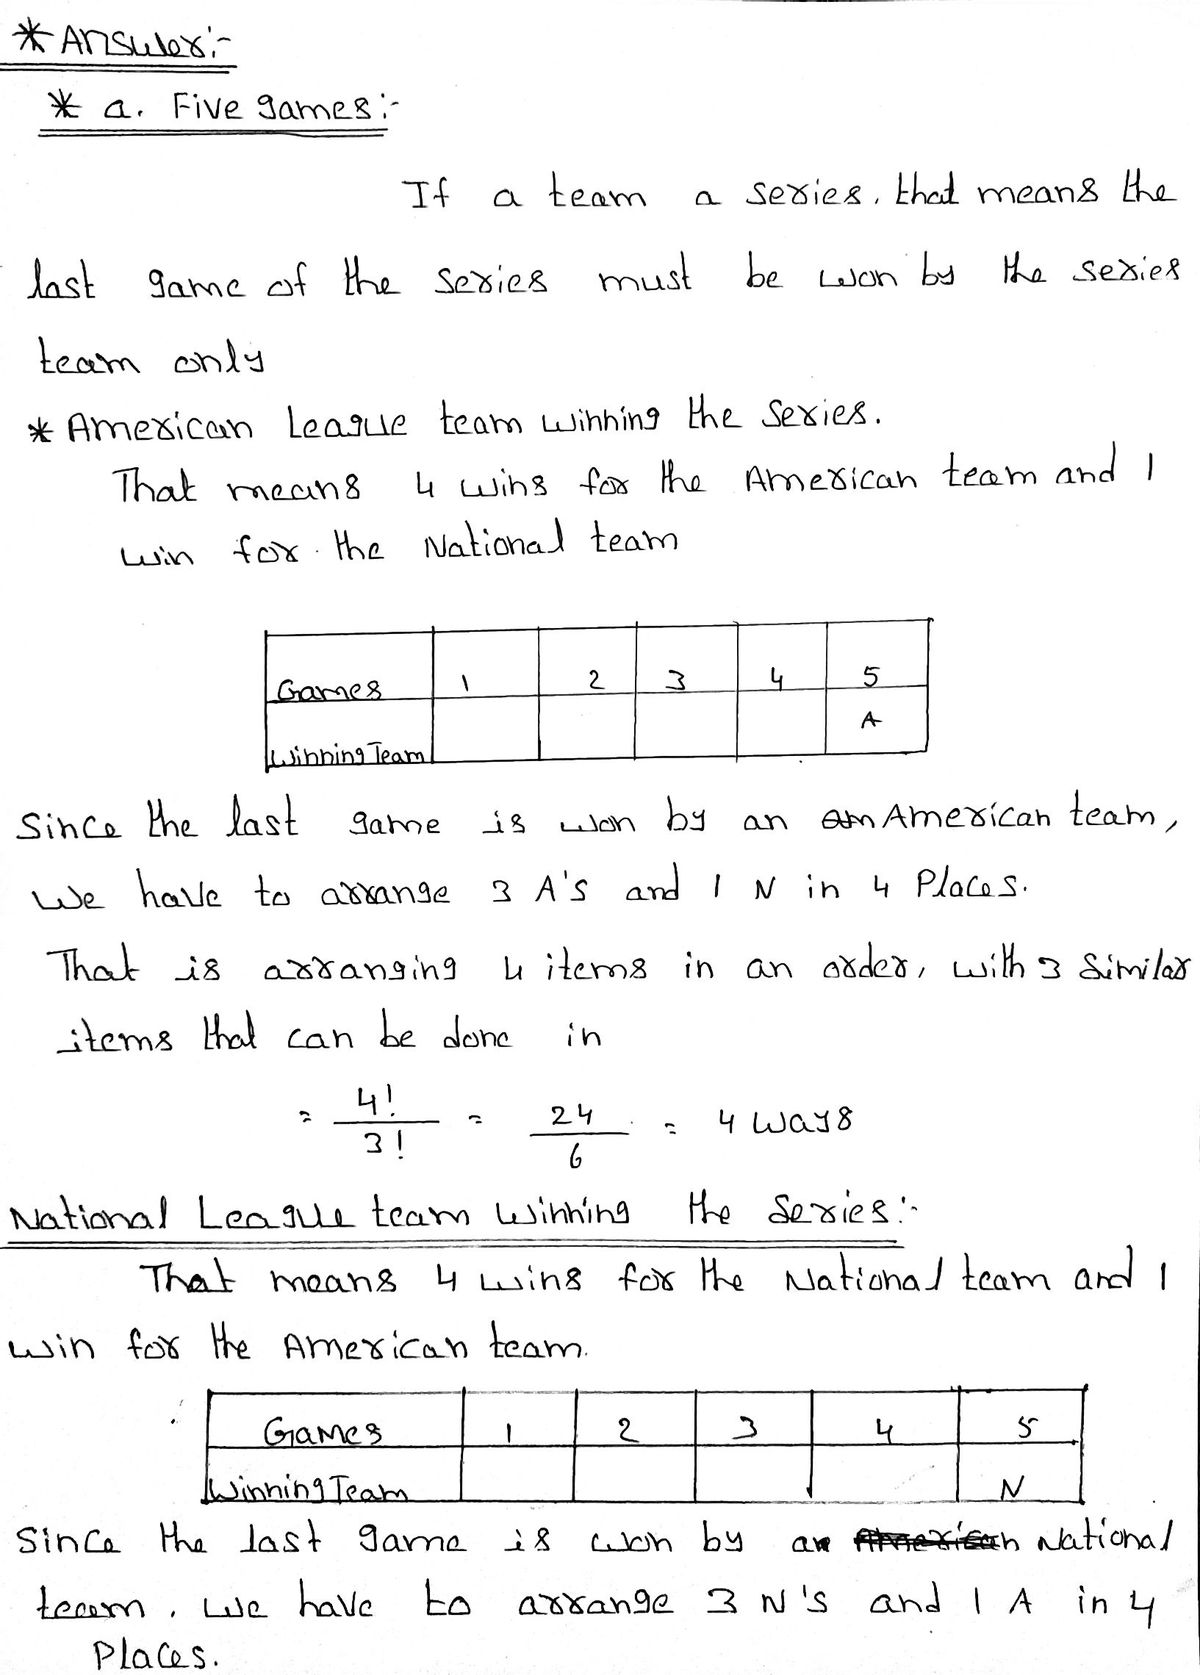 * Answer:-
* a. Five games:-
If a team a series, that means the
last game of the series must be won by the series
team only
* American League team winning the series.
That means 4 wins for the American team and 1
win for the National team
Games 1 2 3 4 5
Winning Team A
Since the last game is won by an am American team,
We have to arrange 3 A's and 1 N in 4 Places.
That is arranging 4 items in an order, with 3 Similar
items that can be done in
= 4!/3! = 24/6 = 4 ways
National League team winning the Series:-
That means 4 wins for the National team and 1
win for the American team.
Games 1 2 3 4 5
Winning Team N
Since the last game is won by an American National
team, we have to arrange 3 N's and 1 A in 4
Places.